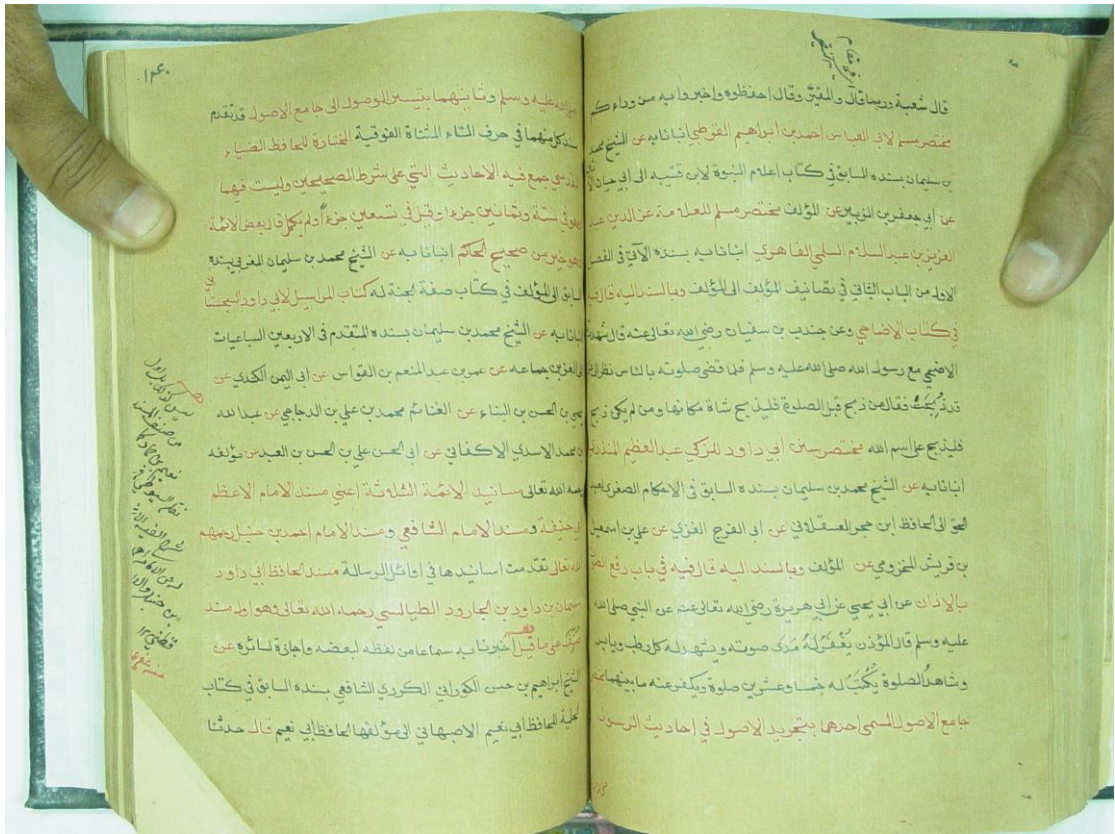 قال شعبة وربما قال والمقير وقال احفظوه واخبروا به من وراءكم
مختصر مسلم لابي العباس احمد بن ابراهيم القرطبي انبانا به عن الشيخ محمد
بن سليمان بسنده السابق في كتاب اعلام النبوة لابن قتيبه الى ابي حيان
عن ابي جعفر بن الزبير عن المؤلف مختصر مسلم للعلامة عز الدين عبد
العزيز بن عبد السلام السلمي القاهري انبانا به بسنده الآتي في الفصل
الاول من الباب الثاني في تصانيف المؤلف الى المؤلف وبالسند اليه قال
في كتاب الاضاحي وعن جندب بن سفيان رضي الله تعالى عنه قال شهدت
الاضحى مع رسول الله صلى الله عليه وسلم فلما قضى صلوته بالناس نظر الى
قد ذُبحت فقال من ذبح قبل الصلوة فليذبح شاة مكانها ومن لم يكن ذبح
فليذبح على اسم الله مختصر سنن ابي داود للزكي عبد العظيم المنذري
انبانا به عن الشيخ محمد بن سليمان بسنده السابق في الاحكام الصغرى لعبد
الحق الى الحافظ ابن حجر العسقلاني عن ابي الفرج الغزي عن علي بن اسمعيل
بن قريش المخزومي عن المؤلف وبالسند اليه قال فيه في باب رفع الصوت
بالاذان عن ابي يحيى عن ابي هريرة رضي الله تعالى عنه عن النبي صلى الله
عليه وسلم قال المؤذن يُغْفَرُ لَهُ مَدَى صوته ويشهد له كل رطب ويابس
وشاهدُ الصلوة يُكْتَبُ له خمسا وعشرين صلوة ويكفر عنه ما بينهما
جامع الاصول المسمى احدهما بتجريد الاصول في احاديث الرسول
صلى الله عليه وسلم وثانيهما بتيسير الوصول الى جامع الاصول قد تقدم
سند كل منهما في حرف التاء المثناة الفوقية المختارة للحافظ الضياء
المقدسي جمع فيه الاحاديث التي على شرط الصحيحين وليست فيهما
وهو في ستة وثمانين جزءا وقيل في تسعين جزءا ولم يكمل قال بعض الائمة
وهو خير من صحيح الحاكم انبانا به عن الشيخ محمد بن سليمان المغربي بسنده
السابق الى المؤلف في كتاب صفة الجنة له كتاب المراسيل لابي داود السجستاني
انبانا به عن الشيخ محمد بن سليمان بسنده المتقدم في الاربعين السباعيات
الى العز بن جماعه عن عمر بن عبد المنعم بن القواس عن ابي اليمن الكندي عن
يحيى بن الحسن بن البناء عن الغنائم محمد بن علي بن الدجاجي عن عبد الله
بن محمد الاسدي الاكفاني عن ابي الحسن علي بن الحسن بن العبد عن مؤلفه
رحمه الله تعالى مسانيد الائمة الثلاثة اعني مسند الامام الاعظم
ابي حنيفة ومسند الامام الشافعي ومسند الامام احمد بن حنبل رحمهم
الله تعالى تقدمت اسانيدها في اوائل الرسالة مسند الحافظ ابي داود
سليمان بن داود بن الجارود الطيالسي رحمه الله تعالى وهو اول مسند
صنف على ما قيل اخبرنا به سماعا من لفظه لبعضه واجازة لسائره عن
الشيخ ابراهيم بن حسن الكوراني الكردي الشافعي بسنده السابق في كتاب
الحلية للحافظ ابي نعيم الاصبهاني الى مؤلفها الحافظ ابي نعيم قال حدثنا